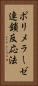 ポリメラーゼ
連鎖反応法